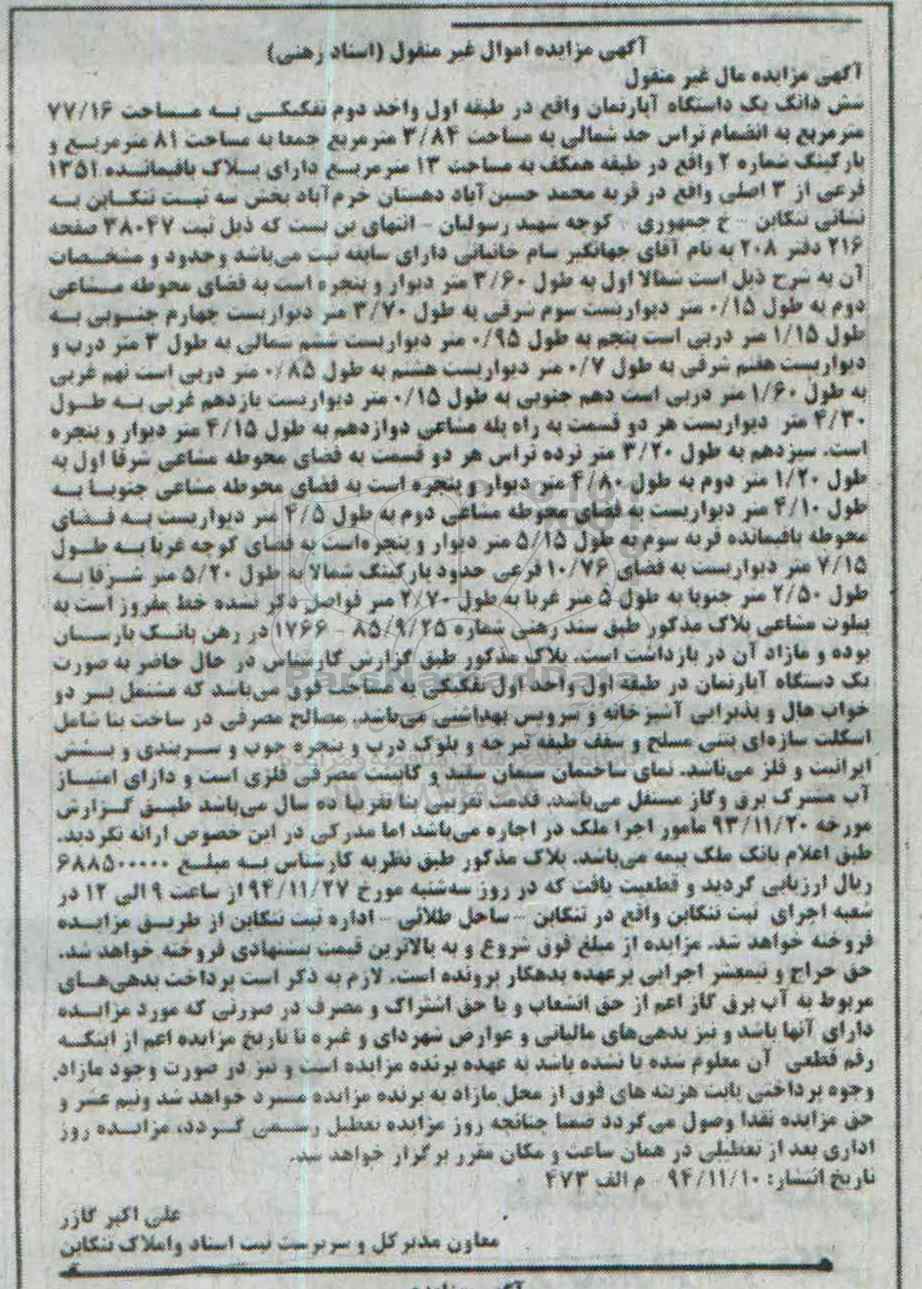 آگهی مزایده اموال غیر منقول (اسناد رهنی)
آگهی مزایده مال غیر منقول
شش دانگ یک دستگاه آپارتمان واقع در طبقه اول واحد دوم تفکیکی به مساحت ۷۷/۱۶
مترمربع به انضمام تراس حد شمالی به مساحت ۳/۸۴ مترمربع جمعا به مساحت ۸۱ مترمربع و
پارکینگ شماره ۲ واقع در طبقه همکف به مساحت ۱۳ مترمربع دارای پلاک باقیمانده ۱۳۵۱
فرعی از ۳ اصلی واقع در قریه محمد حسین آباد دهستان خرم آباد بخش سه ثبت تنکابن به
نشانی تنکابن - خ جمهوری - کوچه شهید رسولیان - انتهای بن بست که ذیل ثبت ۳۸۰۴۷ صفحه
۲۱۶ دفتر ۲۰۸ به نام آقای جهانگیر سام خانیانی دارای سابقه ثبت می‌باشد وحدود و مشخصات
آن به شرح ذیل است شمالا اول به طول ۳/۶۰ متر دیوار و پنجره است به فضای محوطه مشاعی
دوم به طول ۰/۱۵ متر دیواریست سوم شرقی به طول ۳/۷۰ متر دیواریست چهارم جنوبی به
طول ۱/۱۵ متر دربی است پنجم به طول ۰/۹۵ متر دیواریست ششم شمالی به طول ۳ متر درب و
دیواریست هفتم شرقی به طول ۰/۷ متر دیواریست هشتم به طول ۰/۸۵ متر دربی است نهم غربی
به طول ۱/۶۰ متر دربی است دهم جنوبی به طول ۰/۱۵ متر دیواریست یازدهم غربی به طول
۴/۳۰ متر دیواریست هر دو قسمت به راه پله مشاعی دوازدهم به طول ۴/۱۵ متر دیوار و پنجره
است. سیزدهم به طول ۳/۲۰ متر نرده تراس هر دو قسمت به فضای محوطه مشاعی شرقا اول به
طول ۱/۲۰ متر دوم به طول ۴/۸۰ متر دیوار و پنجره است به فضای محوطه مشاعی جنوبا به
طول ۴/۱۰ متر دیواریست به فضای محوطه مشاعی دوم به طول ۴/۵ متر دیواریست به فضای
محوطه باقیمانده قریه سوم به طول ۵/۱۵ متر دیوار و پنجره‌است به فضای کوچه غربا به طول
۷/۱۵ متر دیواریست به فضای ۱۰/۷۶ فرعی حدود پارکینگ شمالا به طول ۵/۲۰ متر شرقا به
طول ۲/۵۰ متر جنوبا به طول ۵ متر غربا به طول ۲/۷۰ متر فواصل ذکر شده خط مفروز است به
پیلوت مشاعی پلاک مذکور طبق سند رهنی شماره ۸۵/۹/۲۵ - ۱۷۶۶ در رهن بانک پارسیان
بوده و مازاد آن در بازداشت است. پلاک مذکور طبق گزارش کارشناس در حال حاضر به صورت
یک دستگاه آپارتمان در طبقه اول واحد اول تفکیکی به مساحت فوق می‌باشد که مشتمل بر دو
خواب هال و پذیرایی آشپزخانه و سرویس بهداشتی می‌باشد. مصالح مصرفی در ساخت بنا شامل
اسکلت سازه‌ای بتنی مسلح و سقف طبقه تیرچه و بلوک درب و پنجره چوب و سربندی و پوشش
ایرانیت و فلز می‌باشد. نمای ساختمان سیمان سفید و کابینت مصرفی فلزی است و دارای امتیاز
آب مشترک برق وگاز مستقل می‌باشد. قدمت تقریبی بنا تقریبا ده سال می‌باشد طبق گزارش
مورخه ۹۳/۱۱/۲۰ مامور اجرا ملک در اجاره می‌باشد اما مدرکی در این خصوص ارائه نگردید.
طبق اعلام بانک ملک بیمه می‌باشد. پلاک مذکور طبق نظریه کارشناس به مبلغ ۶۸۸۵۰۰۰۰۰
ریال ارزیابی گردید و قطعیت یافت که در روز سه‌شنبه مورخ ۹۴/۱۱/۲۷ از ساعت ۹ الی ۱۲ در
شعبه اجرای ثبت تنکابن واقع در تنکابن - ساحل طلائی - اداره ثبت تنکابن از طریق مزایده
فروخته خواهد شد. مزایده از مبلغ فوق شروع و به بالاترین قیمت پیشنهادی فروخته خواهد شد.
حق حراج و نیمعشر اجرایی برعهده بدهکار پرونده است. لازم به ذکر است پرداخت بدهی‌های
مربوط به آب برق گاز اعم از حق انشعاب و یا حق اشتراک و مصرف در صورتی که مورد مزایده
دارای آنها باشد و نیز بدهی‌های مالیاتی و عوارض شهرداری و غیره تا تاریخ مزایده اعم از اینکه
رقم قطعی آن معلوم شده یا نشده باشد به عهده برنده مزایده است و نیز در صورت وجود مازاد
وجوه پرداختی بابت هزینه های فوق از محل مازاد به برنده مزایده مسترد خواهد شد ونیم عشر و
حق مزایده نقدا وصول می‌گردد ضمنا چنانچه روز مزایده تعطیل رسمی گردد، مزایده روز
اداری بعد از تعطیلی در همان ساعت و مکان مقرر برگزار خواهد شد.
تاریخ انتشار: ۹۴/۱۱/۱۰ - م الف ۴۷۳
علی اکبر گازر
معاون مدیرکل و سرپرست ثبت اسناد واملاک تنکابن
ParsNamadData